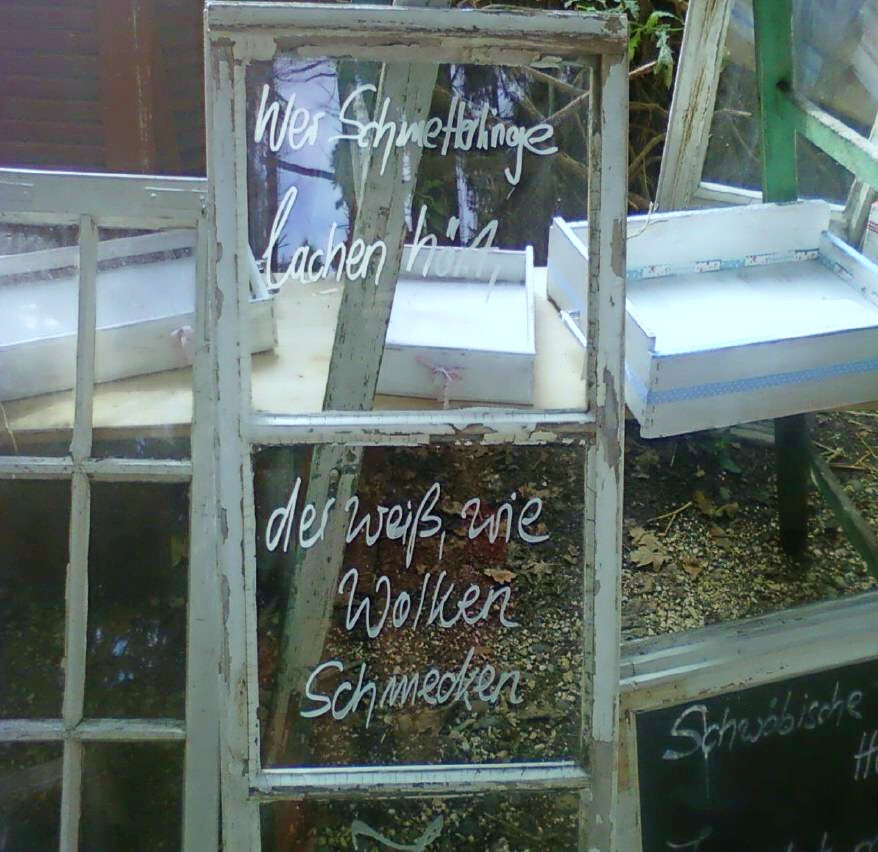 Wer Schmetterlinge
lachen hört,
der weiß, wie
Wolken
Schmecken
Schwäbische